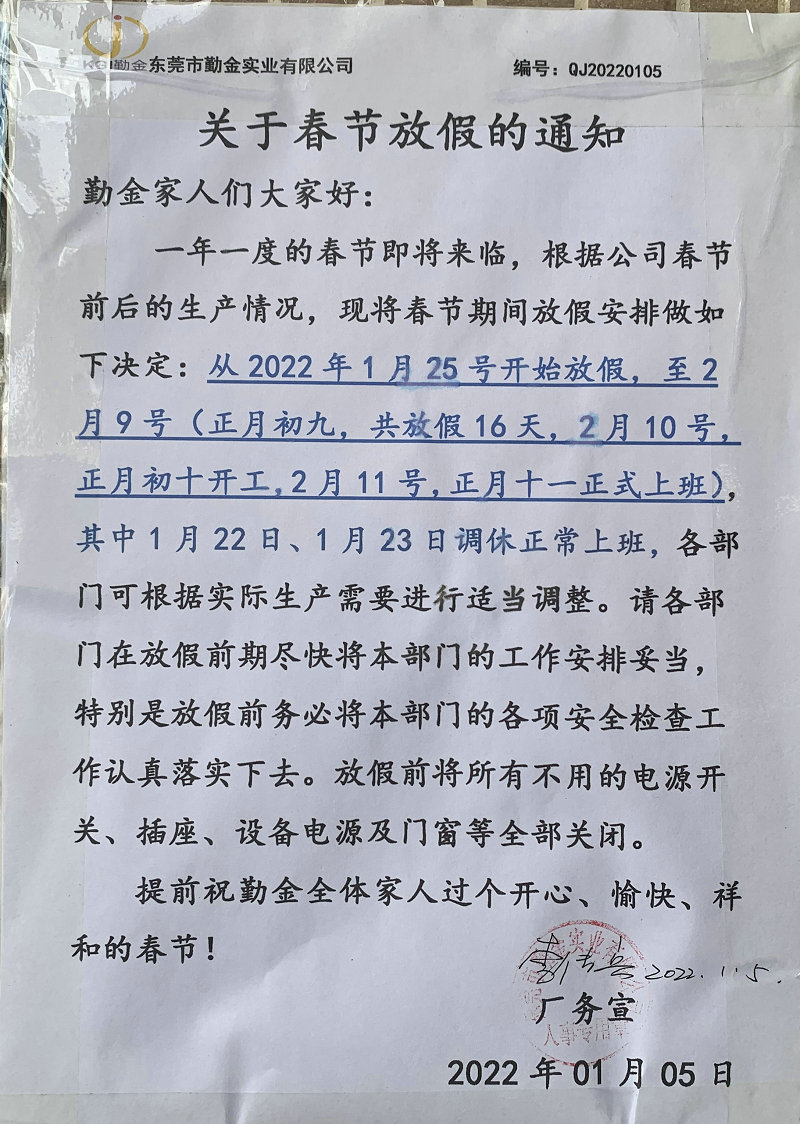 KGJ勤金东莞市勤金实业有限公司 编号：QJ20220105
关于春节放假的通知
勤金家人们大家好：
一年一度的春节即将来临，根据公司春节
前后的生产情况，现将春节期间放假安排做如
下决定：从2022年1月25号开始放假，至2
月9号（正月初九，共放假16天，2月10号，
正月初十开工,2月11号,正月十一正式上班），
其中1月22日、1月23日调休正常上班，各部
门可根据实际生产需要进行适当调整。请各部
门在放假前期尽快将本部门的工作安排妥当，
特别是放假前务必将本部门的各项安全检查工
作认真落实下去。放假前将所有不用的电源开
关、插座、设备电源及门窗等全部关闭。
提前祝勤金全体家人过个开心、愉快、祥
和的春节！
2022.1.5.
厂务宣
人事专用章
2022年01月05日